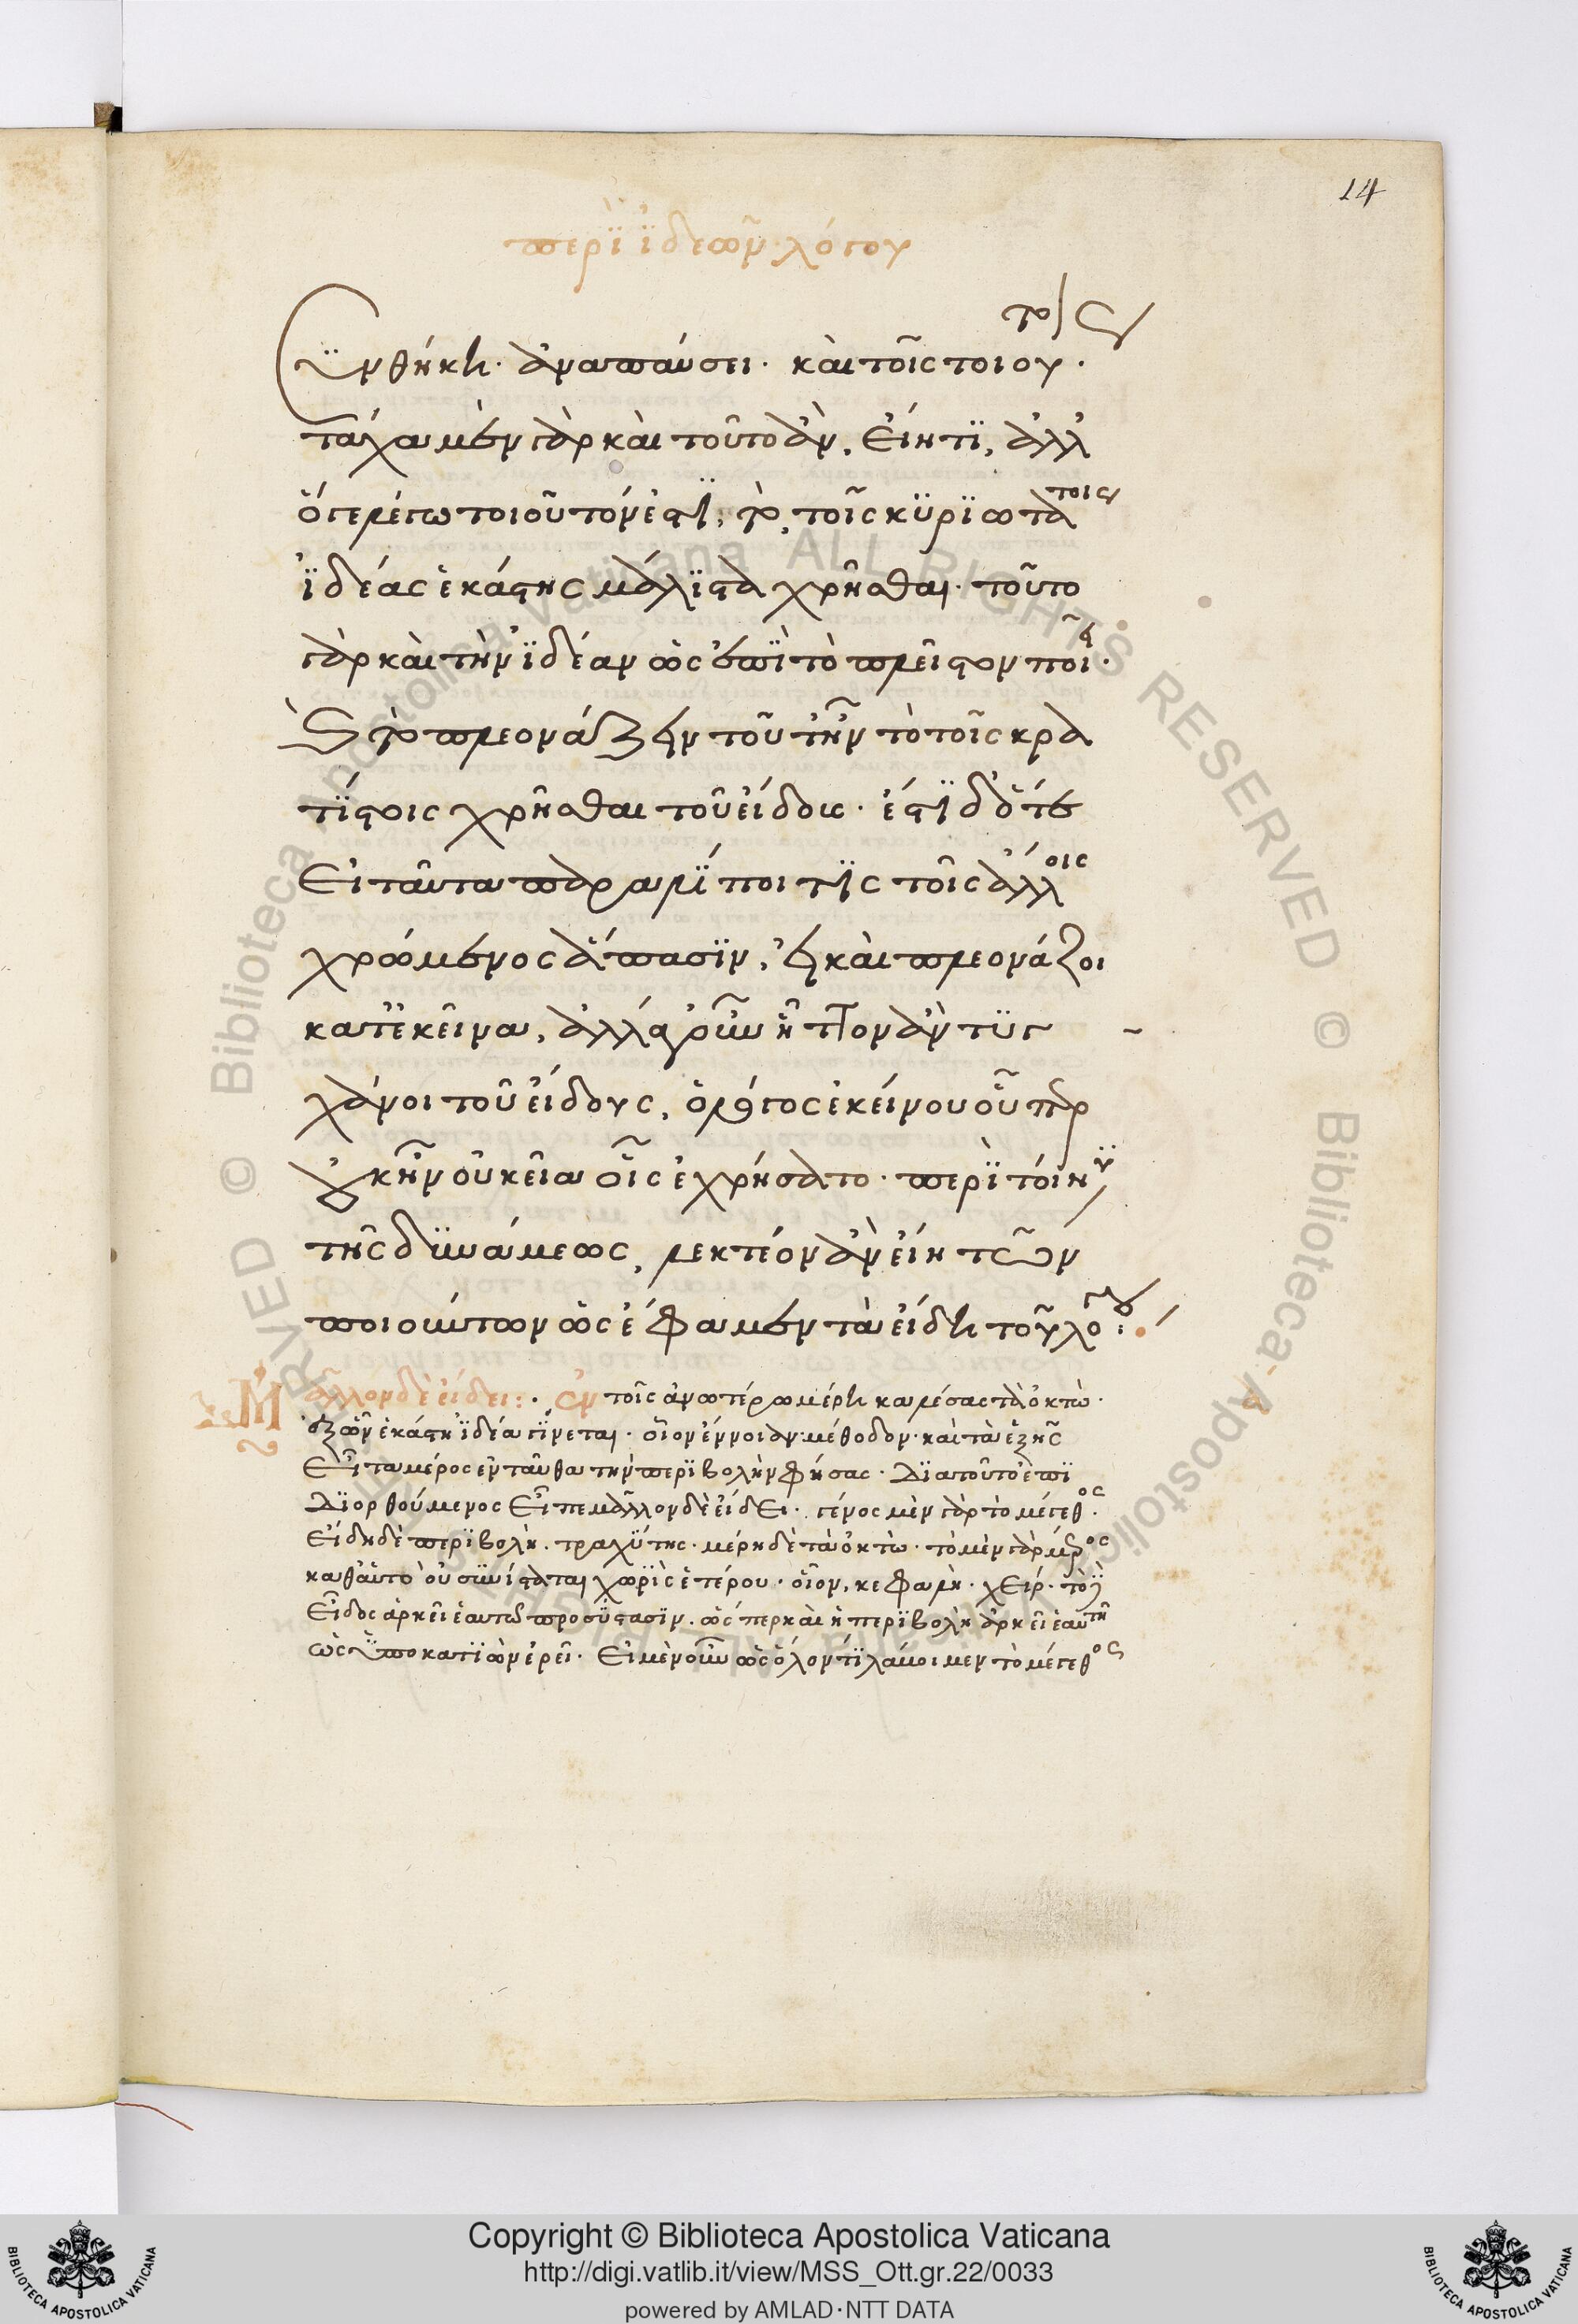 14
περὶ ἰδεῶν λόγου
συνθήκη· ἀναπαύσει· καὶ τοῖς τοιού
τάχα μὲν γὰρ καὶ τοῦτο ἂν, εἴη τι, ἀλλ'
ὅ γε λέγω τοιοῦτόν ἐστι, τὸ, τοῖς κυριωτάτοις
ἰδέας ἑκάστης μάλιστα χρῆσθαι· τοῦτο
γὰρ καὶ τὴν ἰδέαν ὡς ἐπὶ τὸ πλεῖστον ποιεῖ·
καὶ τὸ πλεονάζειν τοῦτ' ἦν τὸ τοῖς κρα
τίστοις χρῆσθαι τοῦ εἴδους· ἔστι δ' ὅτε
εἰ ταῦτα παραλίποι τίς τοῖς ἄλλοις
χρώμενος ἅπασιν, εἰ καὶ πλεονάζοι
κατ' ἐκεῖνα, ἀλλότριον ἢ ἧττον ἂν τυγ
χάνοι τοῦ εἴδους, ὁ λόγος ἐκείνου οὗπερ
οὐκ ἦν οἰκεῖα οἷς ἐχρήσατο· περὶ τοίνυν
τῆς δυνάμεως, λεκτέον ἂν εἴη τῶν
ποιούντων ὡς ἔφαμεν τὰ εἴδη τοῦ λόγου:
Μᾶλλον δὲ εἴδει: · ἐν τοῖς ἀνωτέρω μέρη καλέσας τὰ ὀκτὼ·
ἐξ ὧν ἑκάστη ἰδέα γίνεται· οἷον ἔννοιαν· μέθοδον· καὶ τὰ ἑξῆς
εἶτα μέρος ἐνταῦθα τὴν περιβολὴν φήσας· διὰ τοῦτο ἐπι
διορθούμενος εἶπε μᾶλλον δὲ εἴδει· γένος μὲν γὰρ τὸ μέγεθος·
εἴδη δὲ περιβολὴ· τραχύτης· μέρη δὲ τὰ ὀκτὼ· τὸ μὲν γὰρ μέρος
καθ' αὑτὸ οὐ συνίσταται χωρὶς ἑτέρου· οἷον, κεφαλὴ· χεὶρ· τὸ δὲ
εἶδος ἀρκεῖ ἑαυτῷ πρὸς σύστασιν· ὥσπερ καὶ ἡ περιβολὴ ἀρκεῖ ἑαυτῇ
ὡς ὑποκατιὼν ἐρεῖ· εἰ μὲν οὖν ὡς ὅλον τι λάβοιμεν τὸ μέγεθος
Copyright © Biblioteca Apostolica Vaticana
http://digi.vatlib.it/view/MSS_Ott.gr.22/0033
powered by AMLAD·NTT DATA